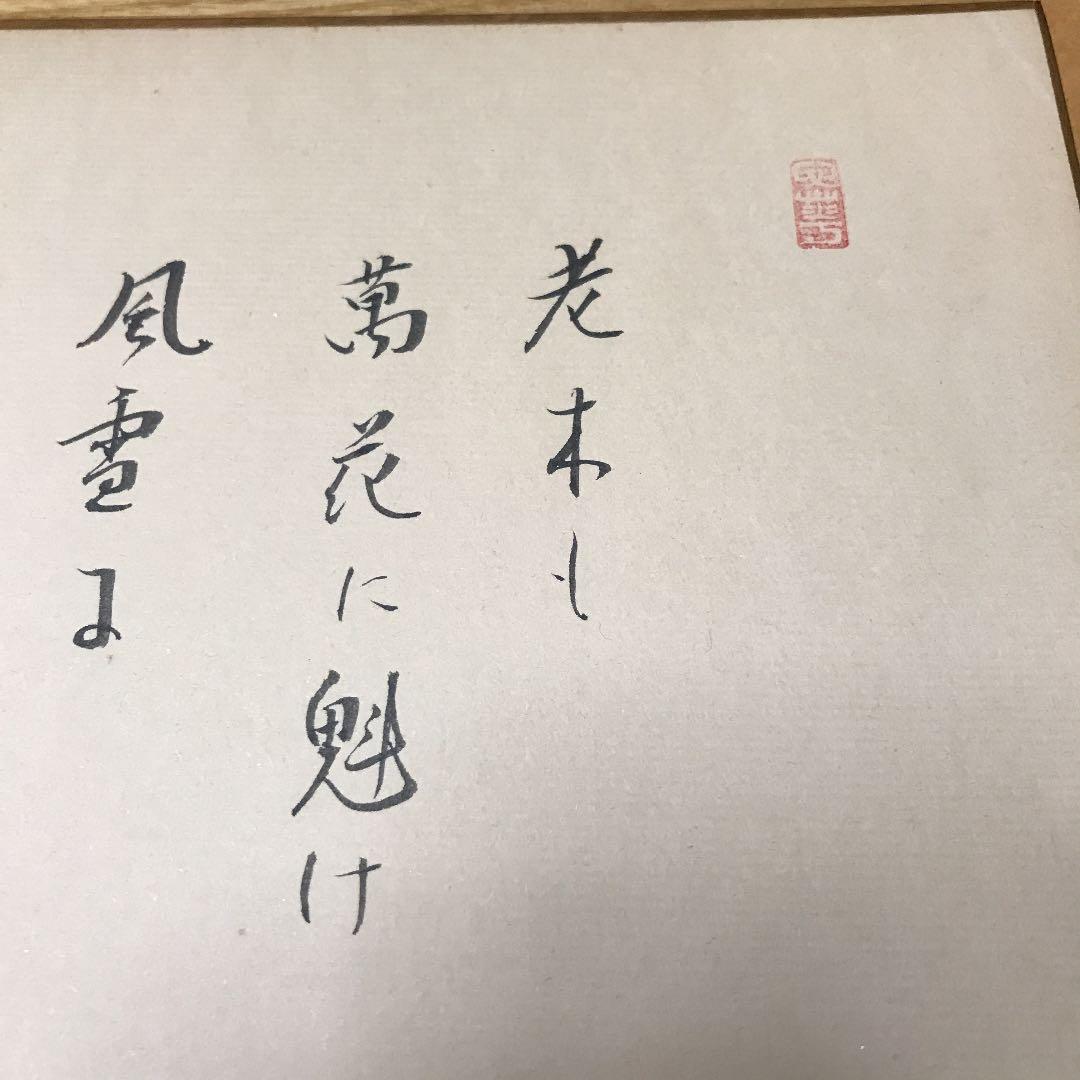 老木も
萬花に魁け
風雪に